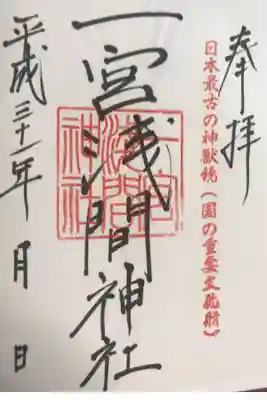 奉拝
日本最古の神獣鏡(国の重要文化財)
一宮浅間神社
一宮浅間神社
平成三十一年 月 日